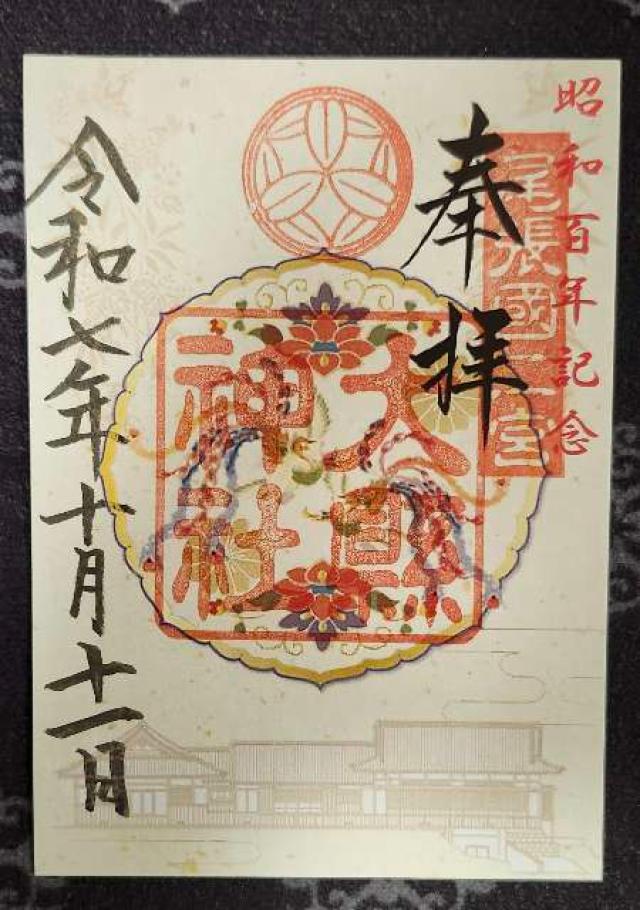 昭和百年記念
尾張國二宮
奉拝
大縣
神社
令和七年十月十一日